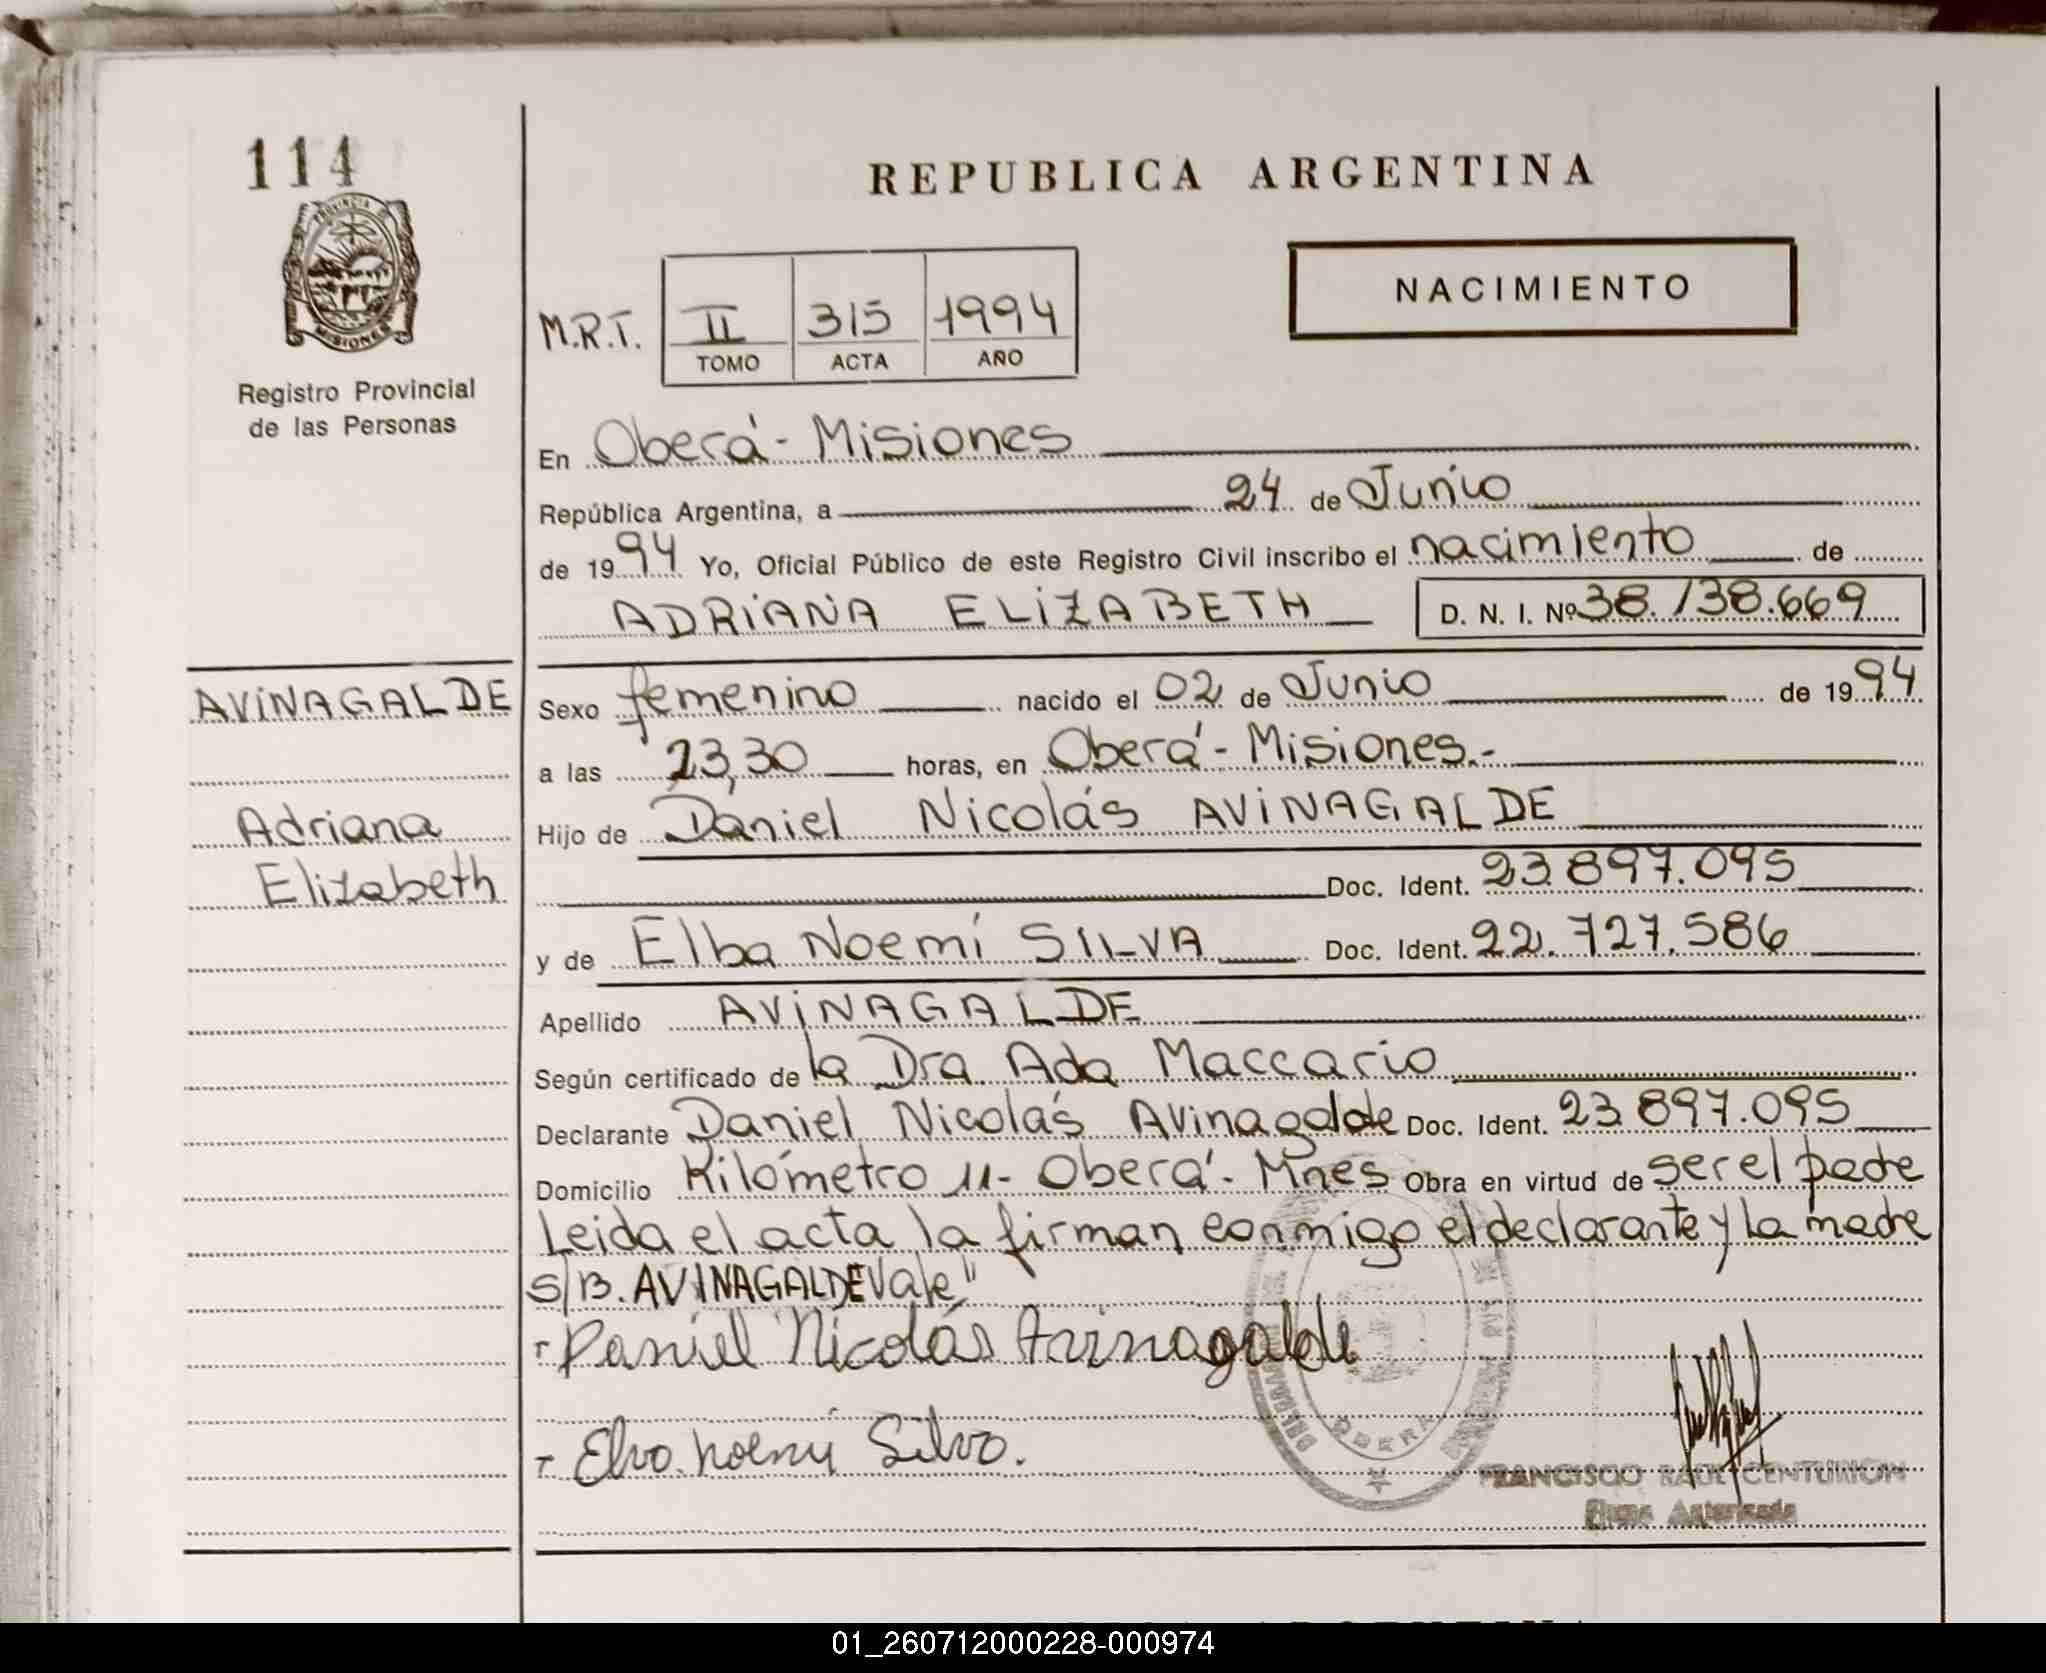 114
REPUBLICA ARGENTINA
PROVINCIA DE
MISIONES
Registro Provincial
de las Personas
NACIMIENTO
M.R.T. II 315 1994
TOMO ACTA AÑO
En Oberá - Misiones
República Argentina, a 24 de Junio
de 1994 Yo, Oficial Público de este Registro Civil inscribo el nacimiento de
ADRIANA ELIZABETH D. N. I. Nº 38.138.669
AVINAGALDE
Adriana
Elizabeth
Sexo femenino nacido el 02 de Junio de 1994
a las 23,30 horas, en Oberá - Misiones.-
Hijo de Daniel Nicolás AVINAGALDE
Doc. Ident. 23.897.095
y de Elba Noemí SILVA Doc. Ident. 22.727.586
Apellido AVINAGALDE
Según certificado de la Dra Ada Maccario
Declarante Daniel Nicolás Avinagalde Doc. Ident. 23.897.095
Domicilio Kilómetro 11- Oberá - Mnes Obra en virtud de ser el padre
Leida el acta la firman conmigo el declarante y la madre
S/B. AVINAGALDE Vale"
- Daniel Nicolás Avinagalde
- Elva Noemí Silva.
OBERA
FRANCISCO RAUL CENTURION
Firma Autorizada
01_260712000228-000974